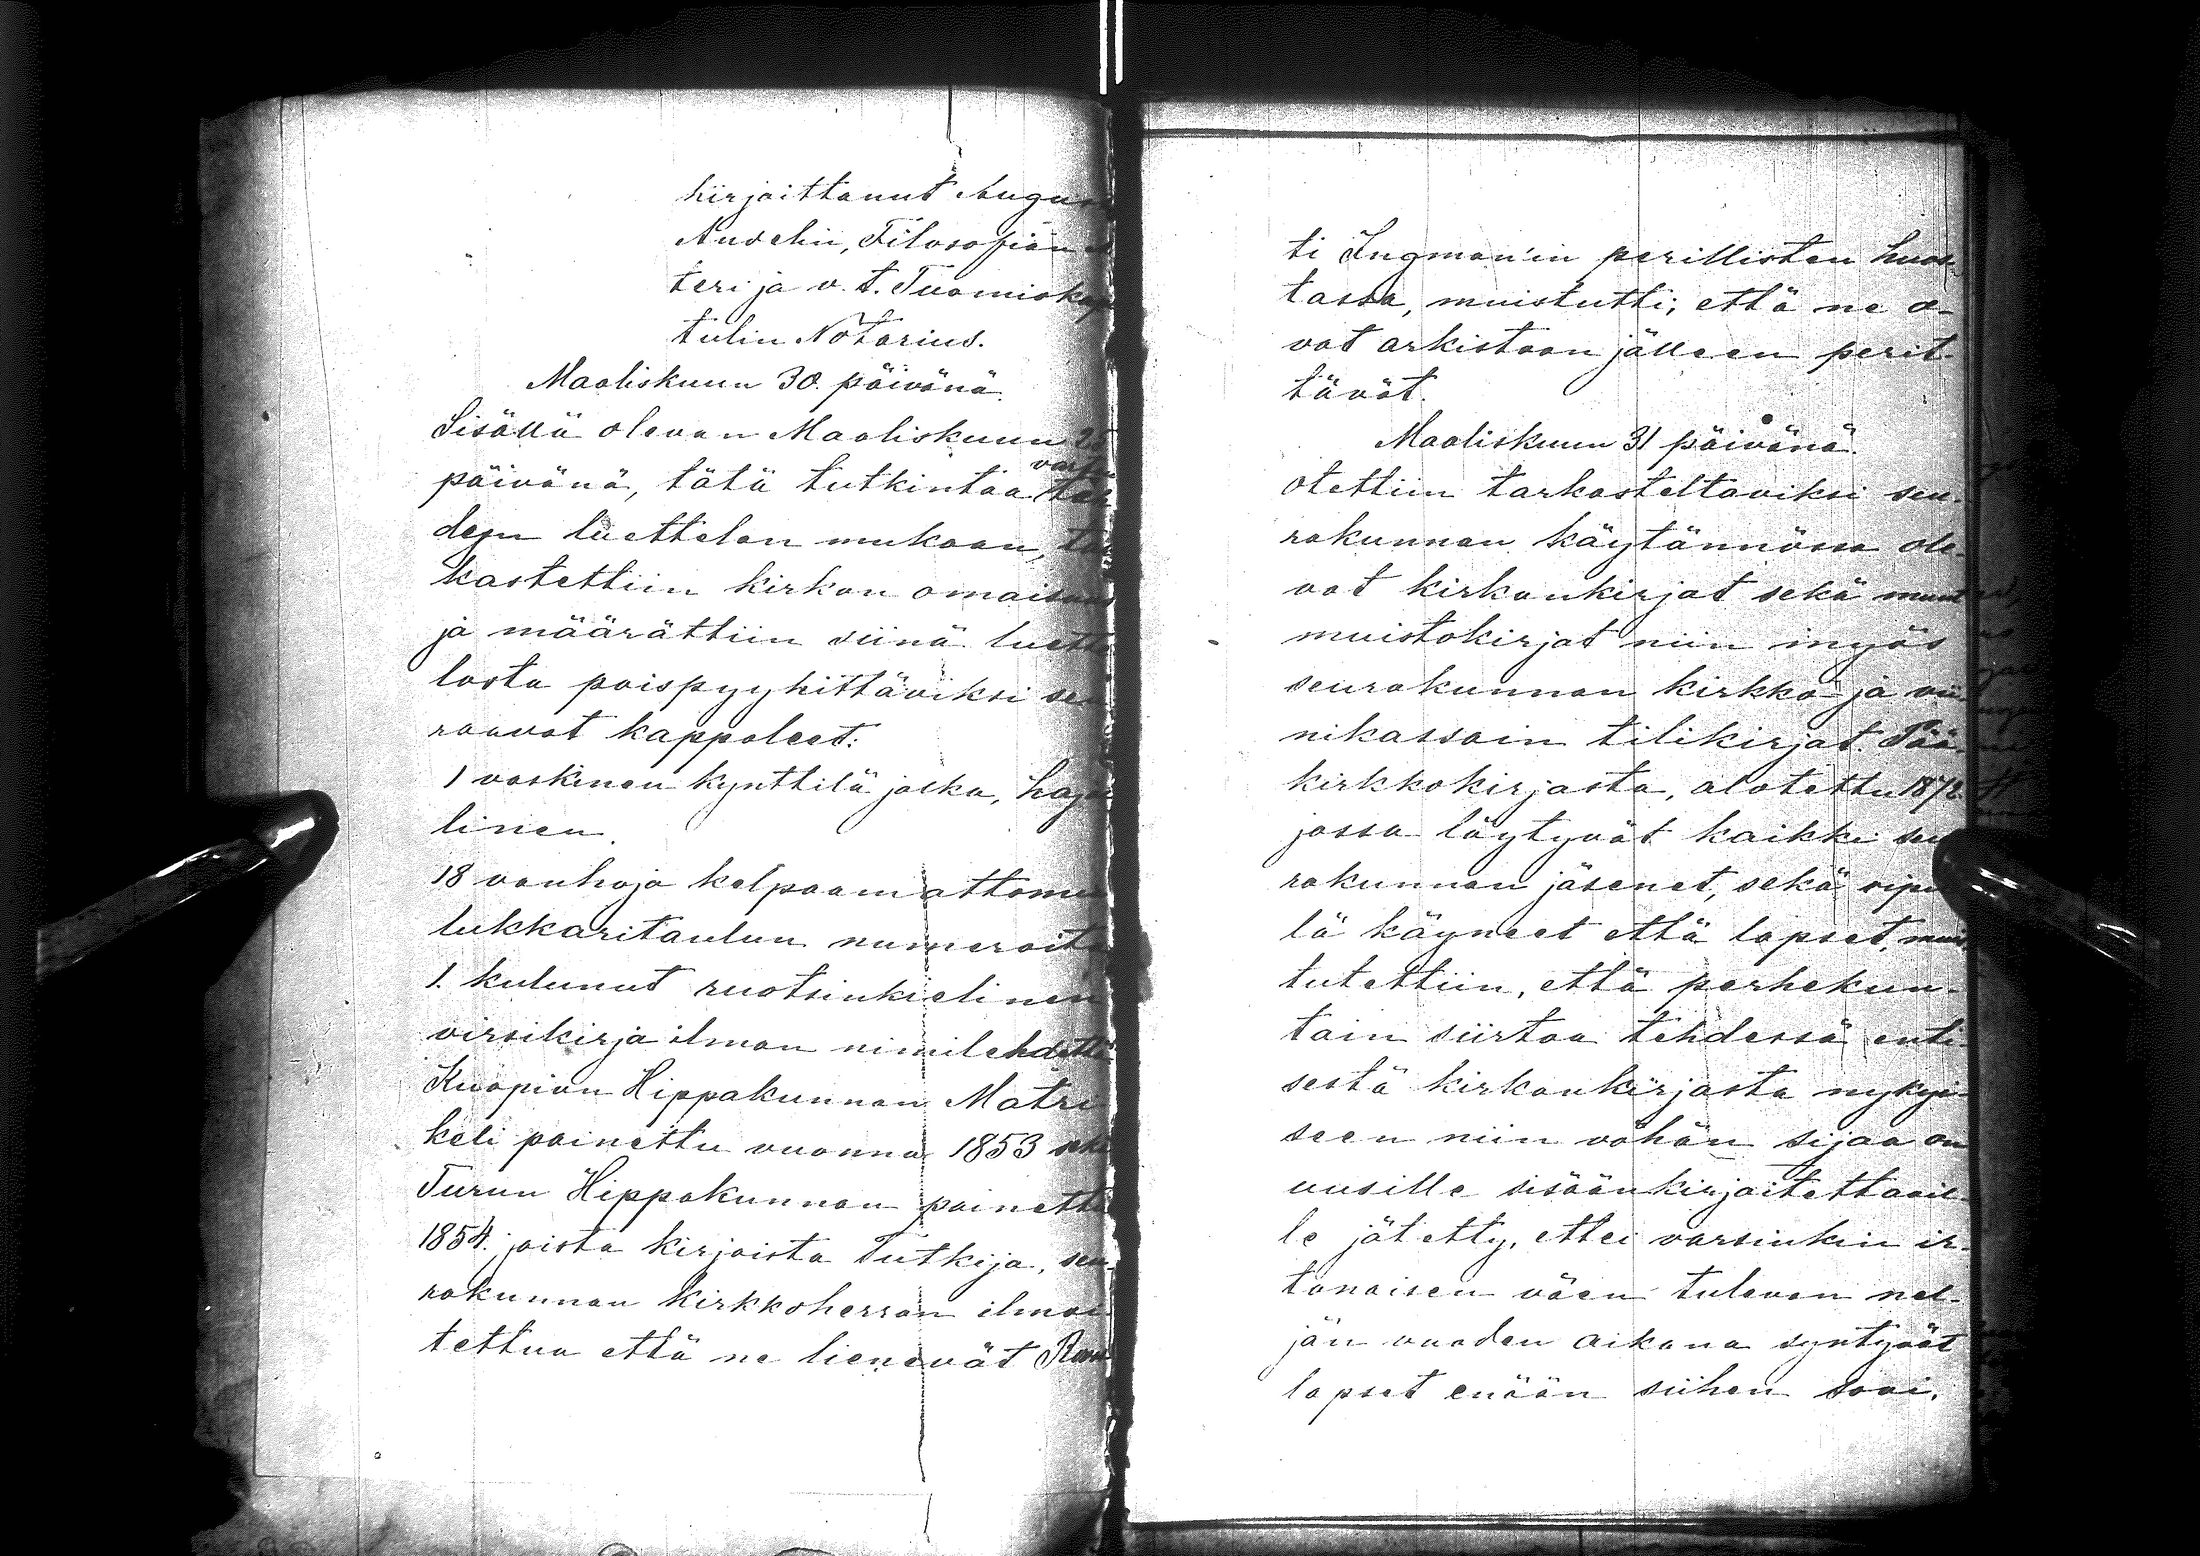 kirjoittanut Augus
Auvelin, Filosofian
teri ja v. t. Tuomiokap
tulin Notarius.
Maaliskuun 30. päivänä
Sisällä olevan Maaliskuun 25
päivänä, tätä tutkintaa varten
den luettelon mukaan, tar
kastettiin kirkon omaisuus
ja määrättiin siinä luette
losta poispyyhittäviksi seu
raavat kappaleet:
1 vaskinen kynttilä jalka, haja
linen.
18 vanhoja kelpaamattomia
lukkaritaulun numeroita
1. kulunut ruotsinkielinen
virsikirja ilman nimilehdettä
Kuopion Hippakunnan Matri
keli painettu vuonna 1853 sekä
Turun Hippakunnan painettu
1854. joista kirjoista Tutkija, seu-
rakunnan kirkkoherran ilmoi
tettua että ne lienevät Rova
ti Ingman'in perillisten huos-
tassa, muistutti; että ne o-
vat arkistoon jälleen perit-
tävät.
Maaliskuun 31 päivänä.
otettiin tarkasteltaviksi seu-
rakunnan käytännössa ole-
vat kirkonkirjat sekä muut
muistokirjat niin myös
seurakunnan kirkko- ja vii
nikassain tilikirjat. Pää-
kirkkokirjasta, alotettu 1872
jossa löytyvät kaikki seu
rakunnan jäsenet, sekä ripil
lä käyneet että lapset, muis
tutettiin, että perhekun-
tain siirtoa tehdessä enti-
sestä kirkonkirjasta nykyi-
seen niin vähän sijaa on
uusille sisäänkirjoitettavil-
le jätetty, ettei varsinkin ir-
tonaisen väen tulevan nel-
jän vuoden aikana syntyvät
lapset enään siihen sovi.